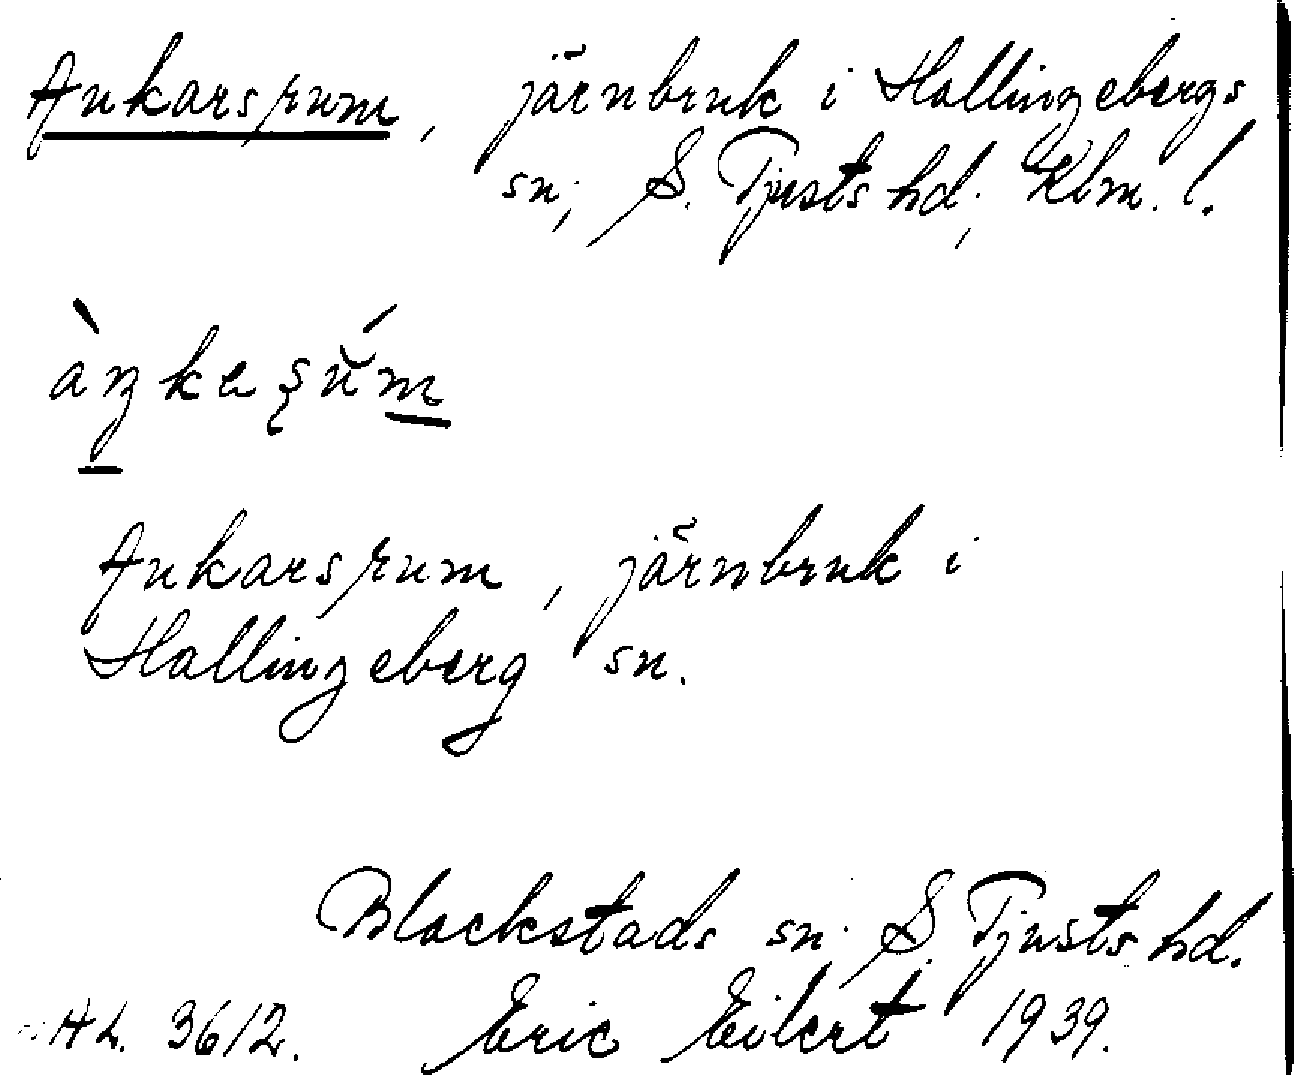 Ankarsrum, järnbruk i Hallingebergs
sn, S. Tjusts hd, Klm. l.
Ankarsrum, järnbruk i
Hallingeberg sn.
Blackstads sn. S. Tjusts hd.
AL. 3612. Eric Eilert 1939.